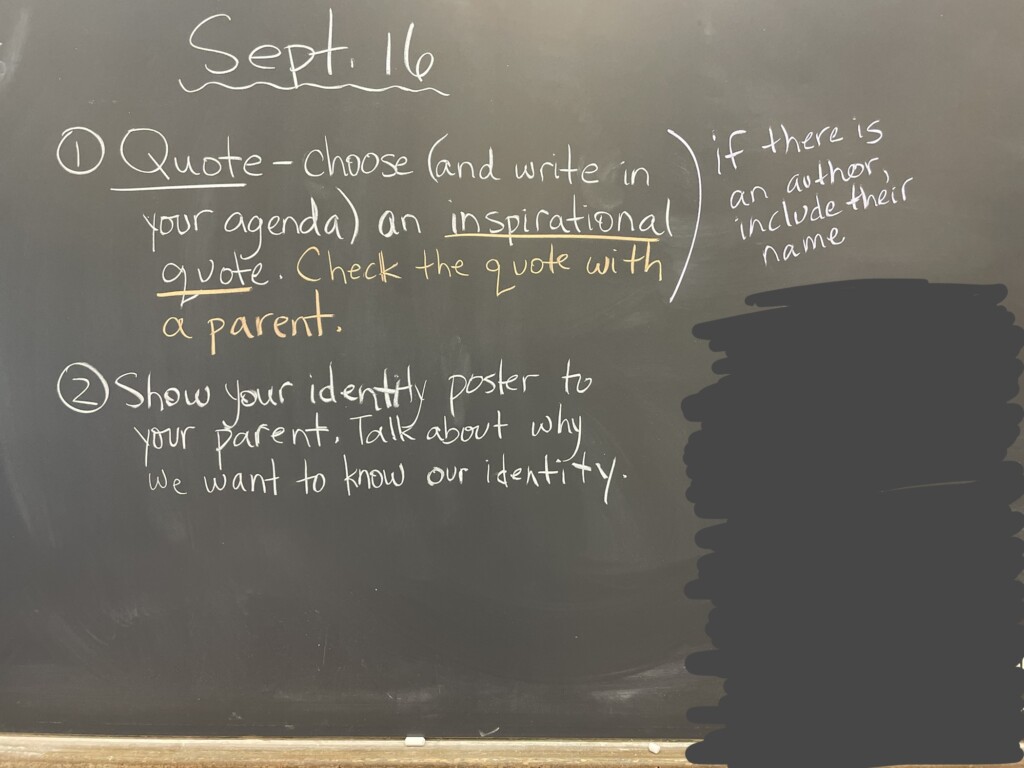 Sept. 16
① Quote - choose (and write in
your agenda) an inspirational
quote. Check the quote with
a parent.
if there is
an author,
include their
name
② Show your identity poster to
your parent. Talk about why
we want to know our identity.